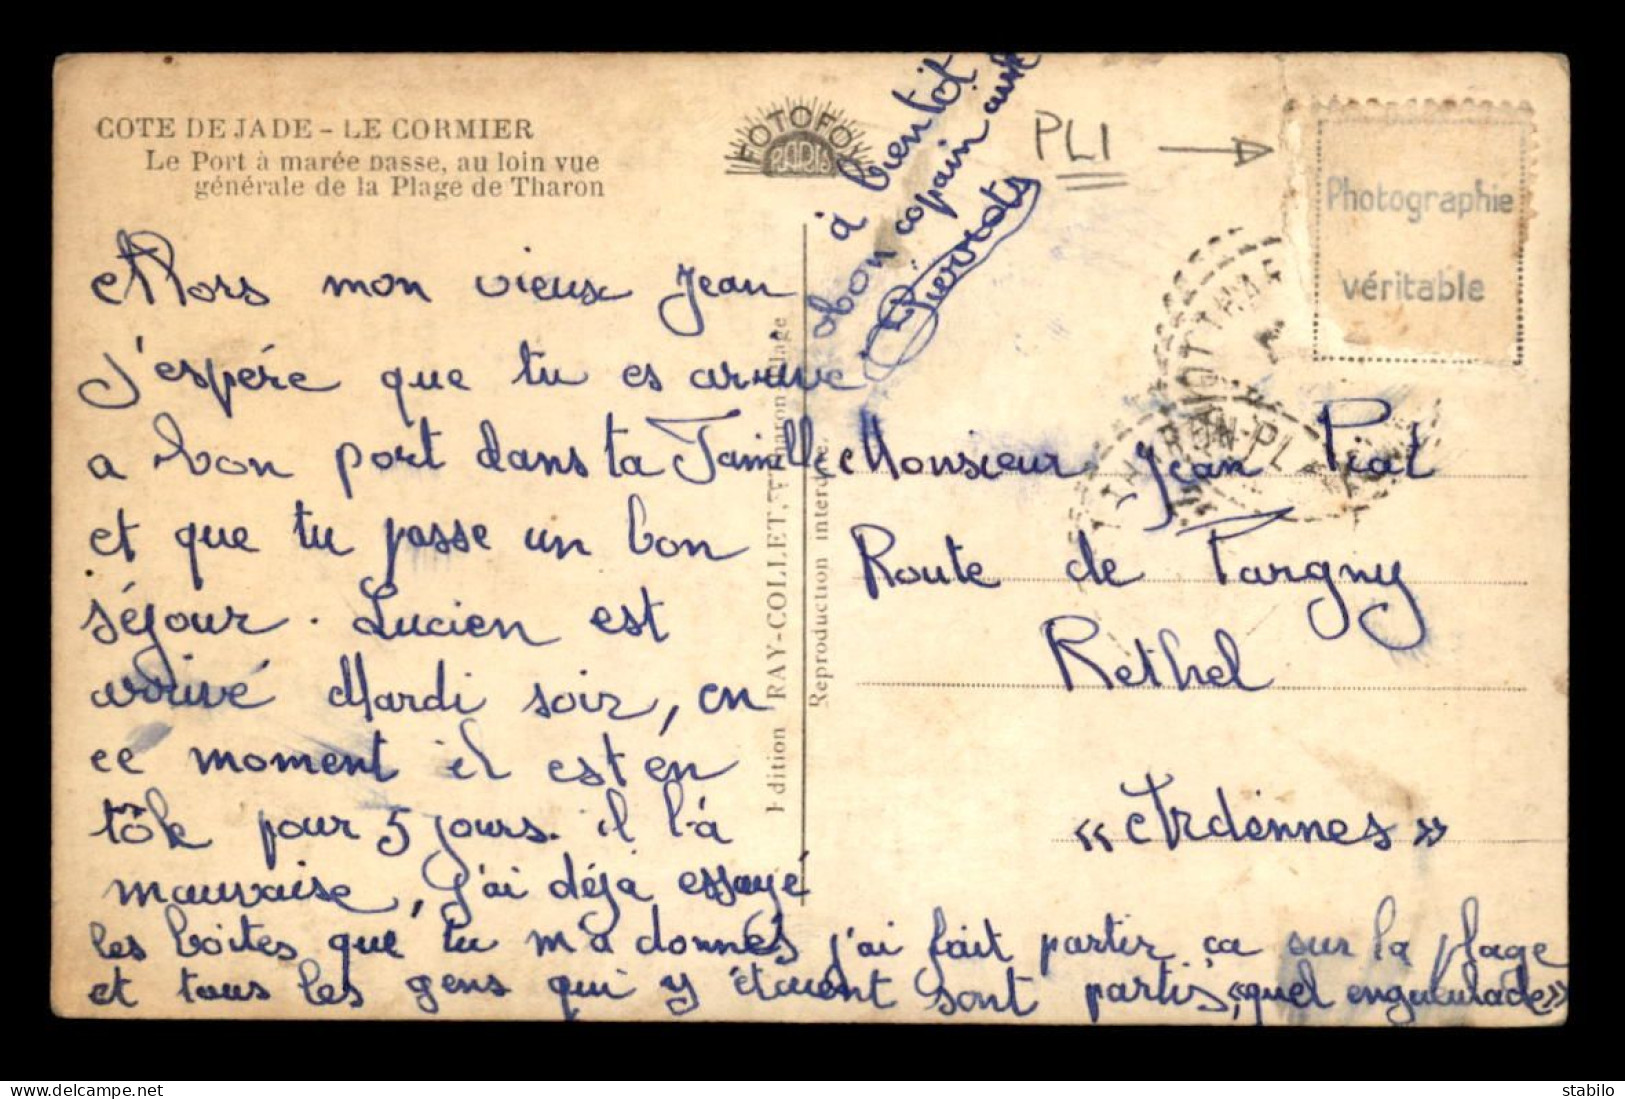 COTE DE JADE - LE CORMIER
Le Port à marée basse, au loin vue
générale de la Plage de Tharon
FOTOFO
PARIS
à bientôt
bon copain
Pierrot
PLI
Photographie
véritable
THARON-PLAGE
Alors mon vieux Jean
J'espére que tu es arrivé
a bon port dans ta Famille
et que tu passe un bon
séjour. Lucien est
arrivé Mardi soir, en
ce moment il est én
tôle pour 5 jours. il l'á
mauvaise, J'ai déja essayé
les boites que tu m'a donnés j'ai fait partir ca sur la plage
et tous les gens qui y étaient sont partis, «quel engueulade»
Edition RAY-COLLET, Tharon-Plage
Reproduction interdite.
Monsieur Jean Piat
Route de Pargny
Rethel
«Ardénnes»
stabilo